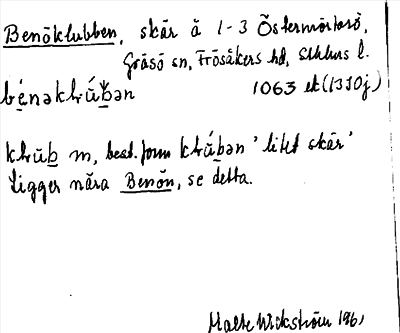 Benöklubben, skär å 1-3 Östermörtarö,
Gräsö sn, Frösåkers hd, Sthlms l.
bénəklŭ́b̬ən 1063 ek (13 I 0 j)
klŭb m, best. form klŭ́bən 'litet skär'
Ligger nära Benön, se detta.
Malte Wickström 1961